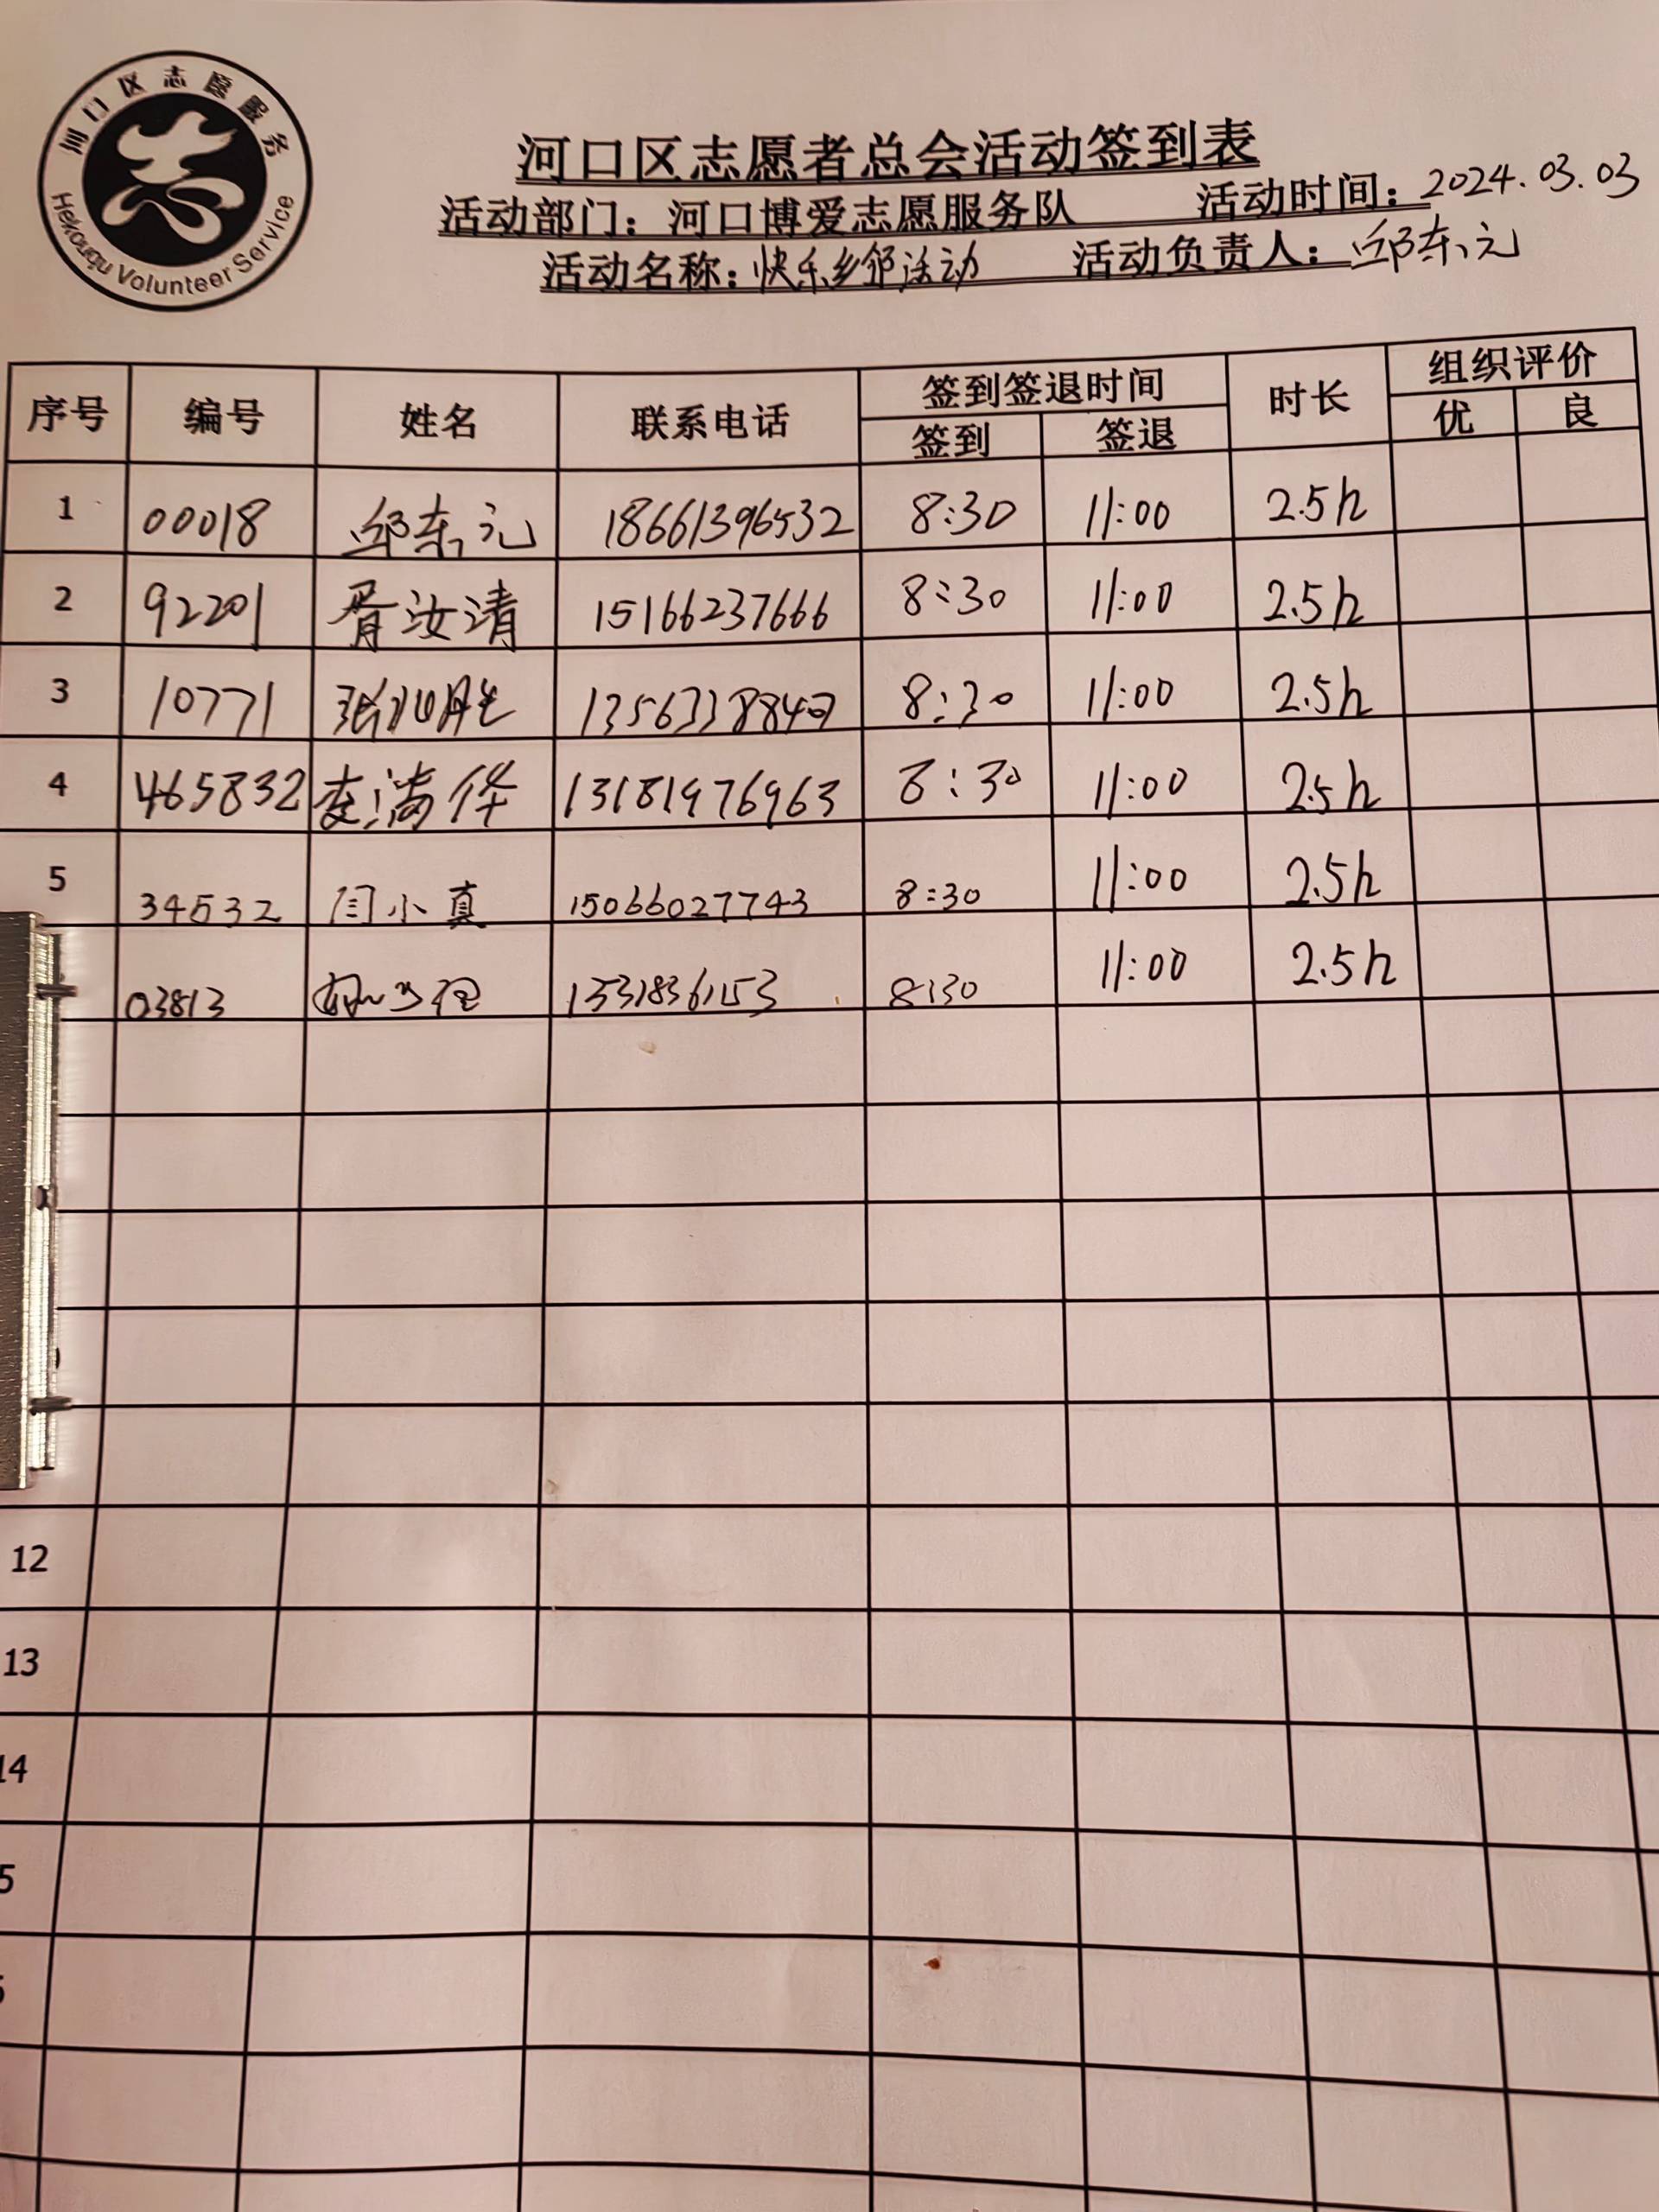 河口区志愿服务
Hekouqu Volunteer Service
河口区志愿者总会活动签到表
活动部门：河口博爱志愿服务队 活动时间：2024.03.03
活动名称：快乐乡邻活动 活动负责人：邱东元
序号 编号 姓名 联系电话 签到签退时间 时长 组织评价
签到 签退 优 良
1 00018 邱东元 18661396532 8:30 11:00 2.5h
2 92201 胥汝清 15166237666 8:30 11:00 2.5h
3 10771 8:30 11:00 2.5h
4 465832 李满华 13181976963 8:30 11:00 2.5h
5 34532 闫小真 15066027743 8:30 11:00 2.5h
03813 8:30 11:00 2.5h
12
13
14
5